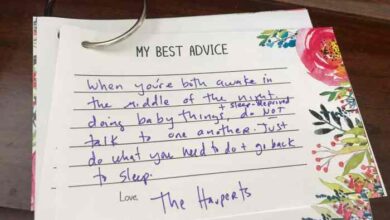 MY BEST ADVICE
When you're both awake in
the middle of the night
+ sleep-deprived
doing baby things, do NOT
talk to one another. Just
do what you need to do + go back
to sleep.
Love, The Hasperts